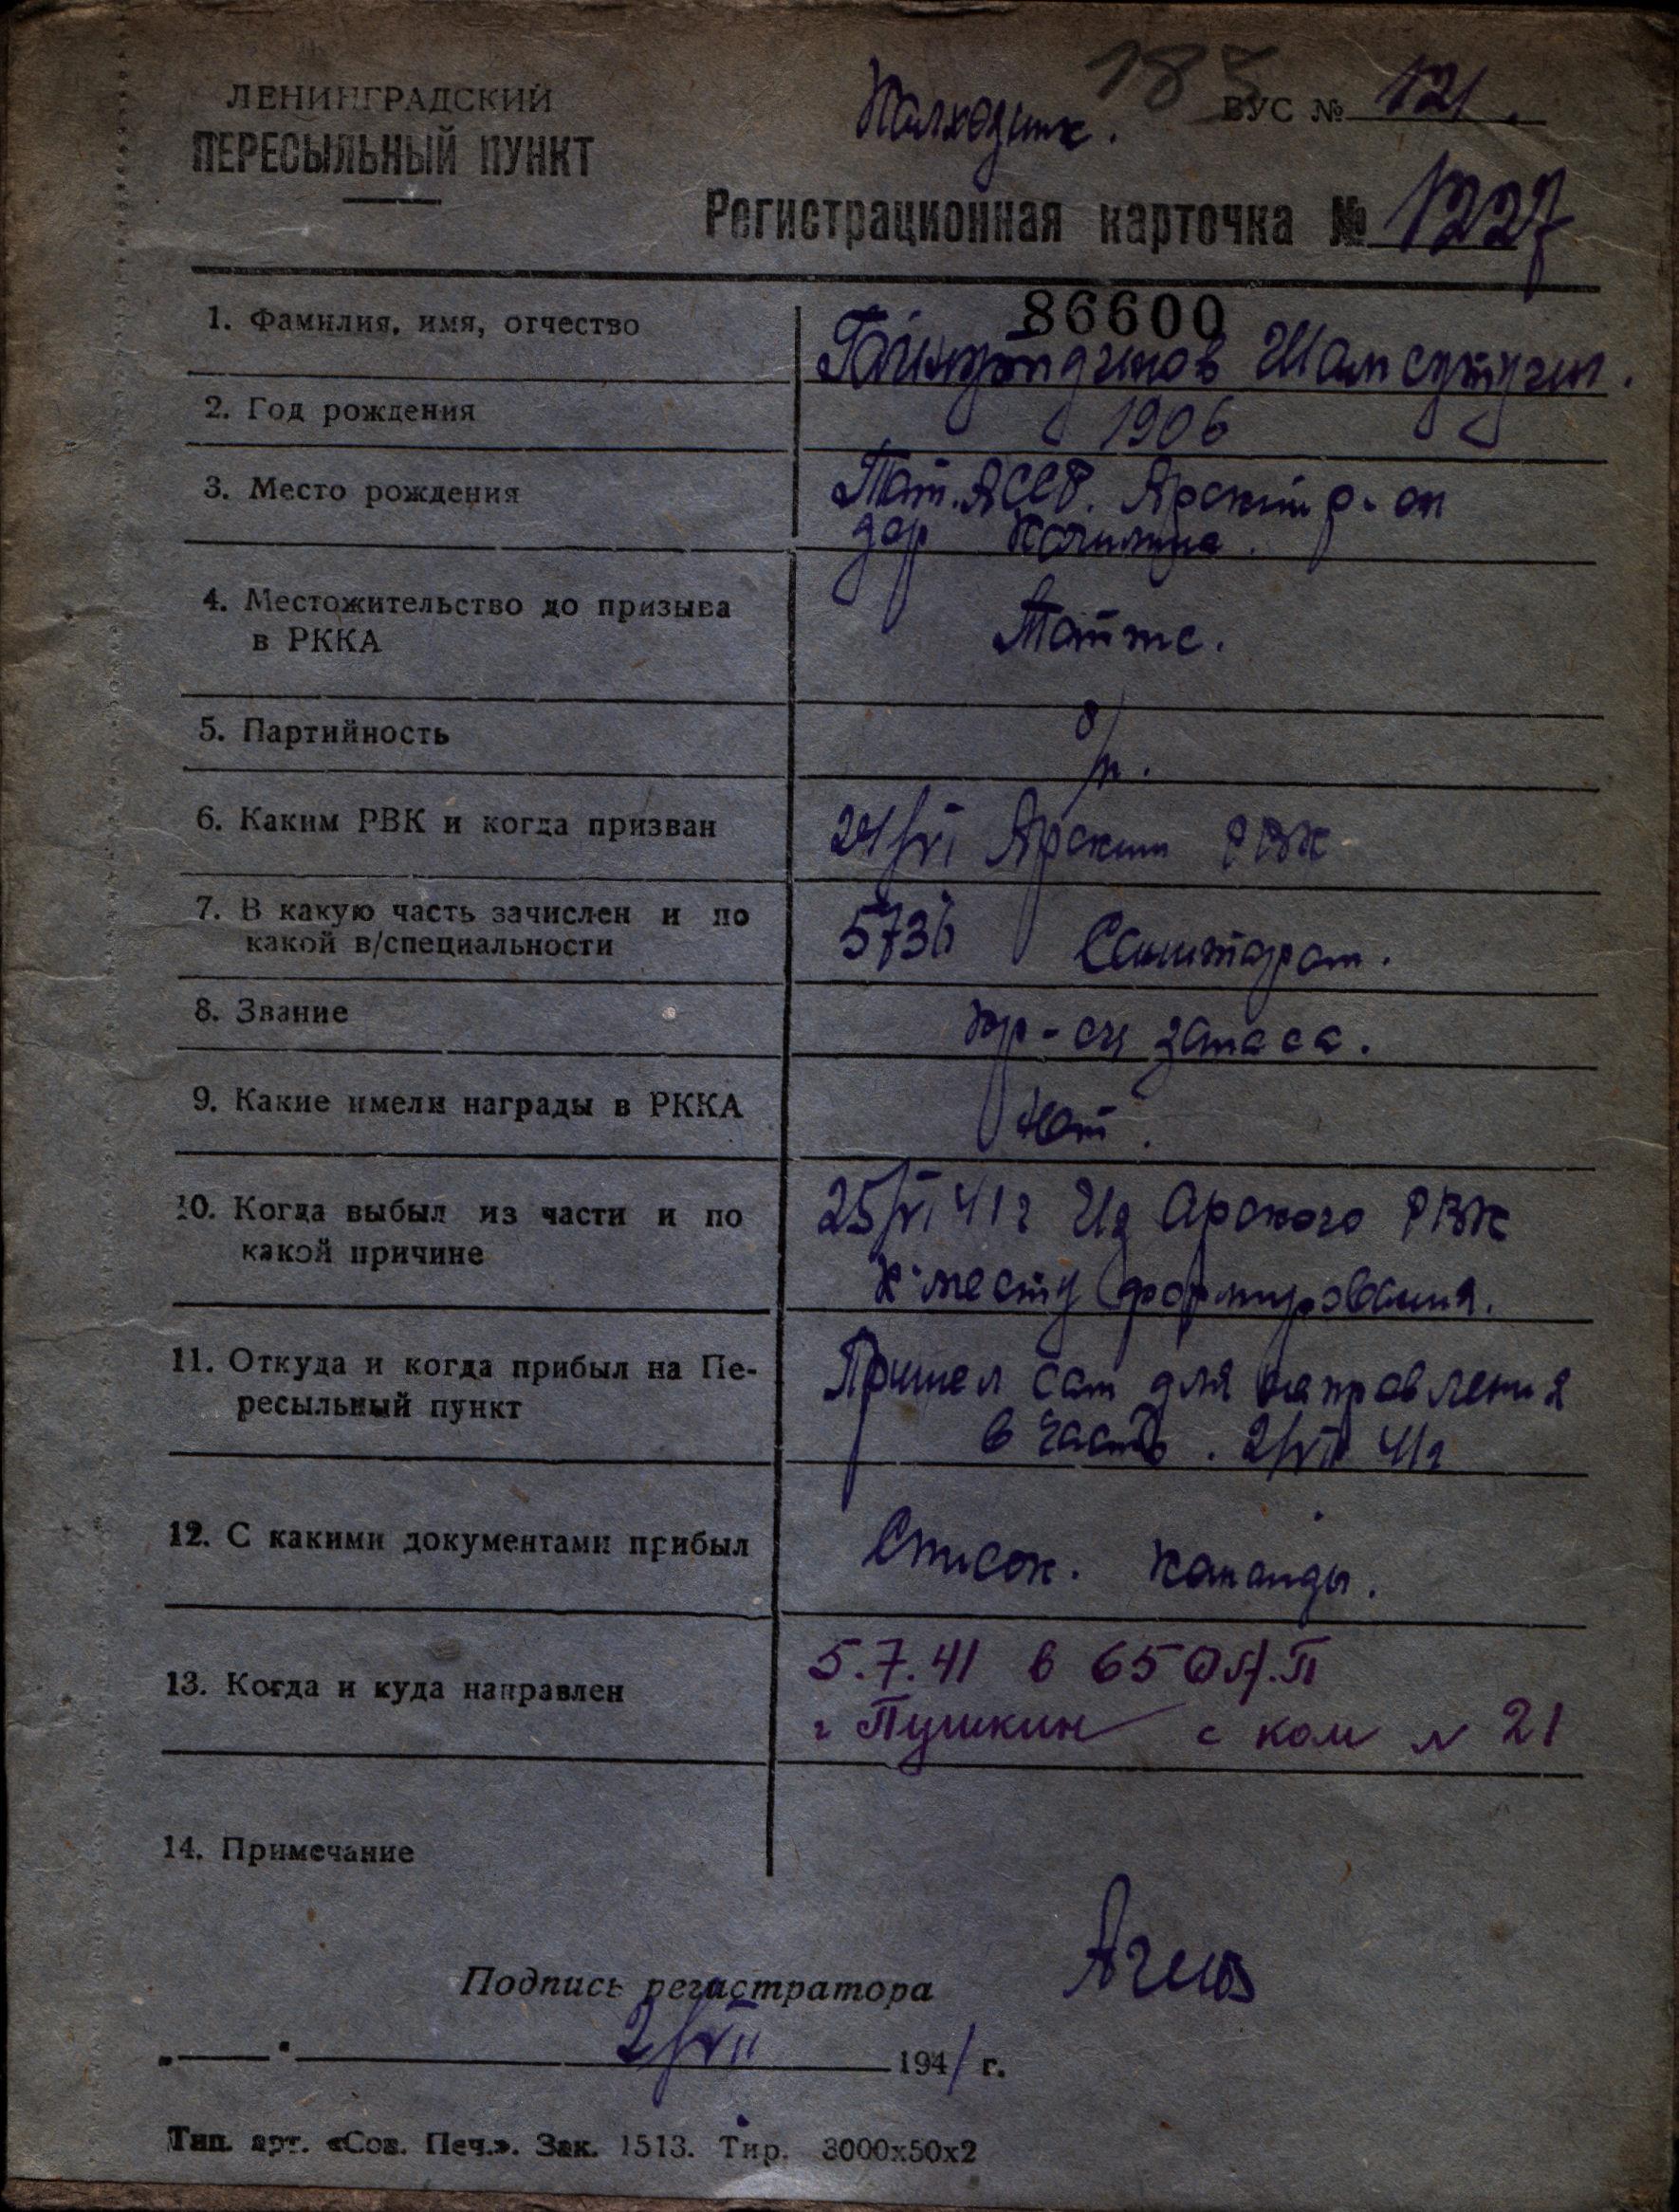 ЛЕНИНГРАДСКИЙ
ПЕРЕСЫЛЬНЫЙ ПУНКТ
Колхозник. 185 ВУС № 121.
Регистрационная карточка № 1227
86600
1. Фамилия, имя, отчество Гайнутдинов Шамсутдин.
2. Год рождения 1906
3. Место рождения Тат. АССР. Арский р-он
дер
4. Местожительство до призыва
в РККА Там же.
5. Партийность б/п.
6. Каким РВК и когда призван 24/VI Арским РВК
7. В какую часть зачислен и по
какой в/специальности 5736 Санитаром.
8. Звание кр-ец запаса.
9. Какие имели награды в РККА Нет.
10. Когда выбыл из части и по 25/VI 41 г Из Арского РВК
какой причине к месту формирования.
11. Откуда и когда прибыл на Пе- Пришел сам для направления
ресыльный пункт в часть. 2/VII 41 г
12. С какими документами прибыл Список. команды.
13. Когда и куда направлен 5.7.41 в 65 П
г Пушкин с ком № 21
14. Примечание
Подпись регистратора
„ — “ 2/VII 1941 г.
Тип. арт. «Сов. Печ.». Зак. 1513. Тир. 3000х50х2